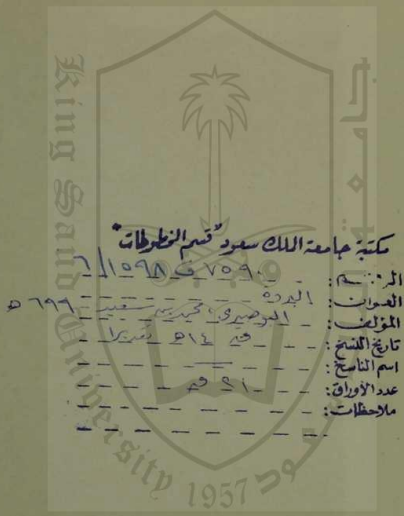 King Saud University
1957
مكتبة جامعة الملك سعود "قسم المخطوطات"
الرقم: ٧٥٩٠ ف ١٥٩٨/٦
العنوان: البردة
المؤلف: البوصيري، محمد بن سعيد ٦٩٦ هـ
تاريخ النسخ: ق ١٤هـ تقديرا
اسم الناسخ:
عدد الأوراق: ٢١ ق
ملاحظات: